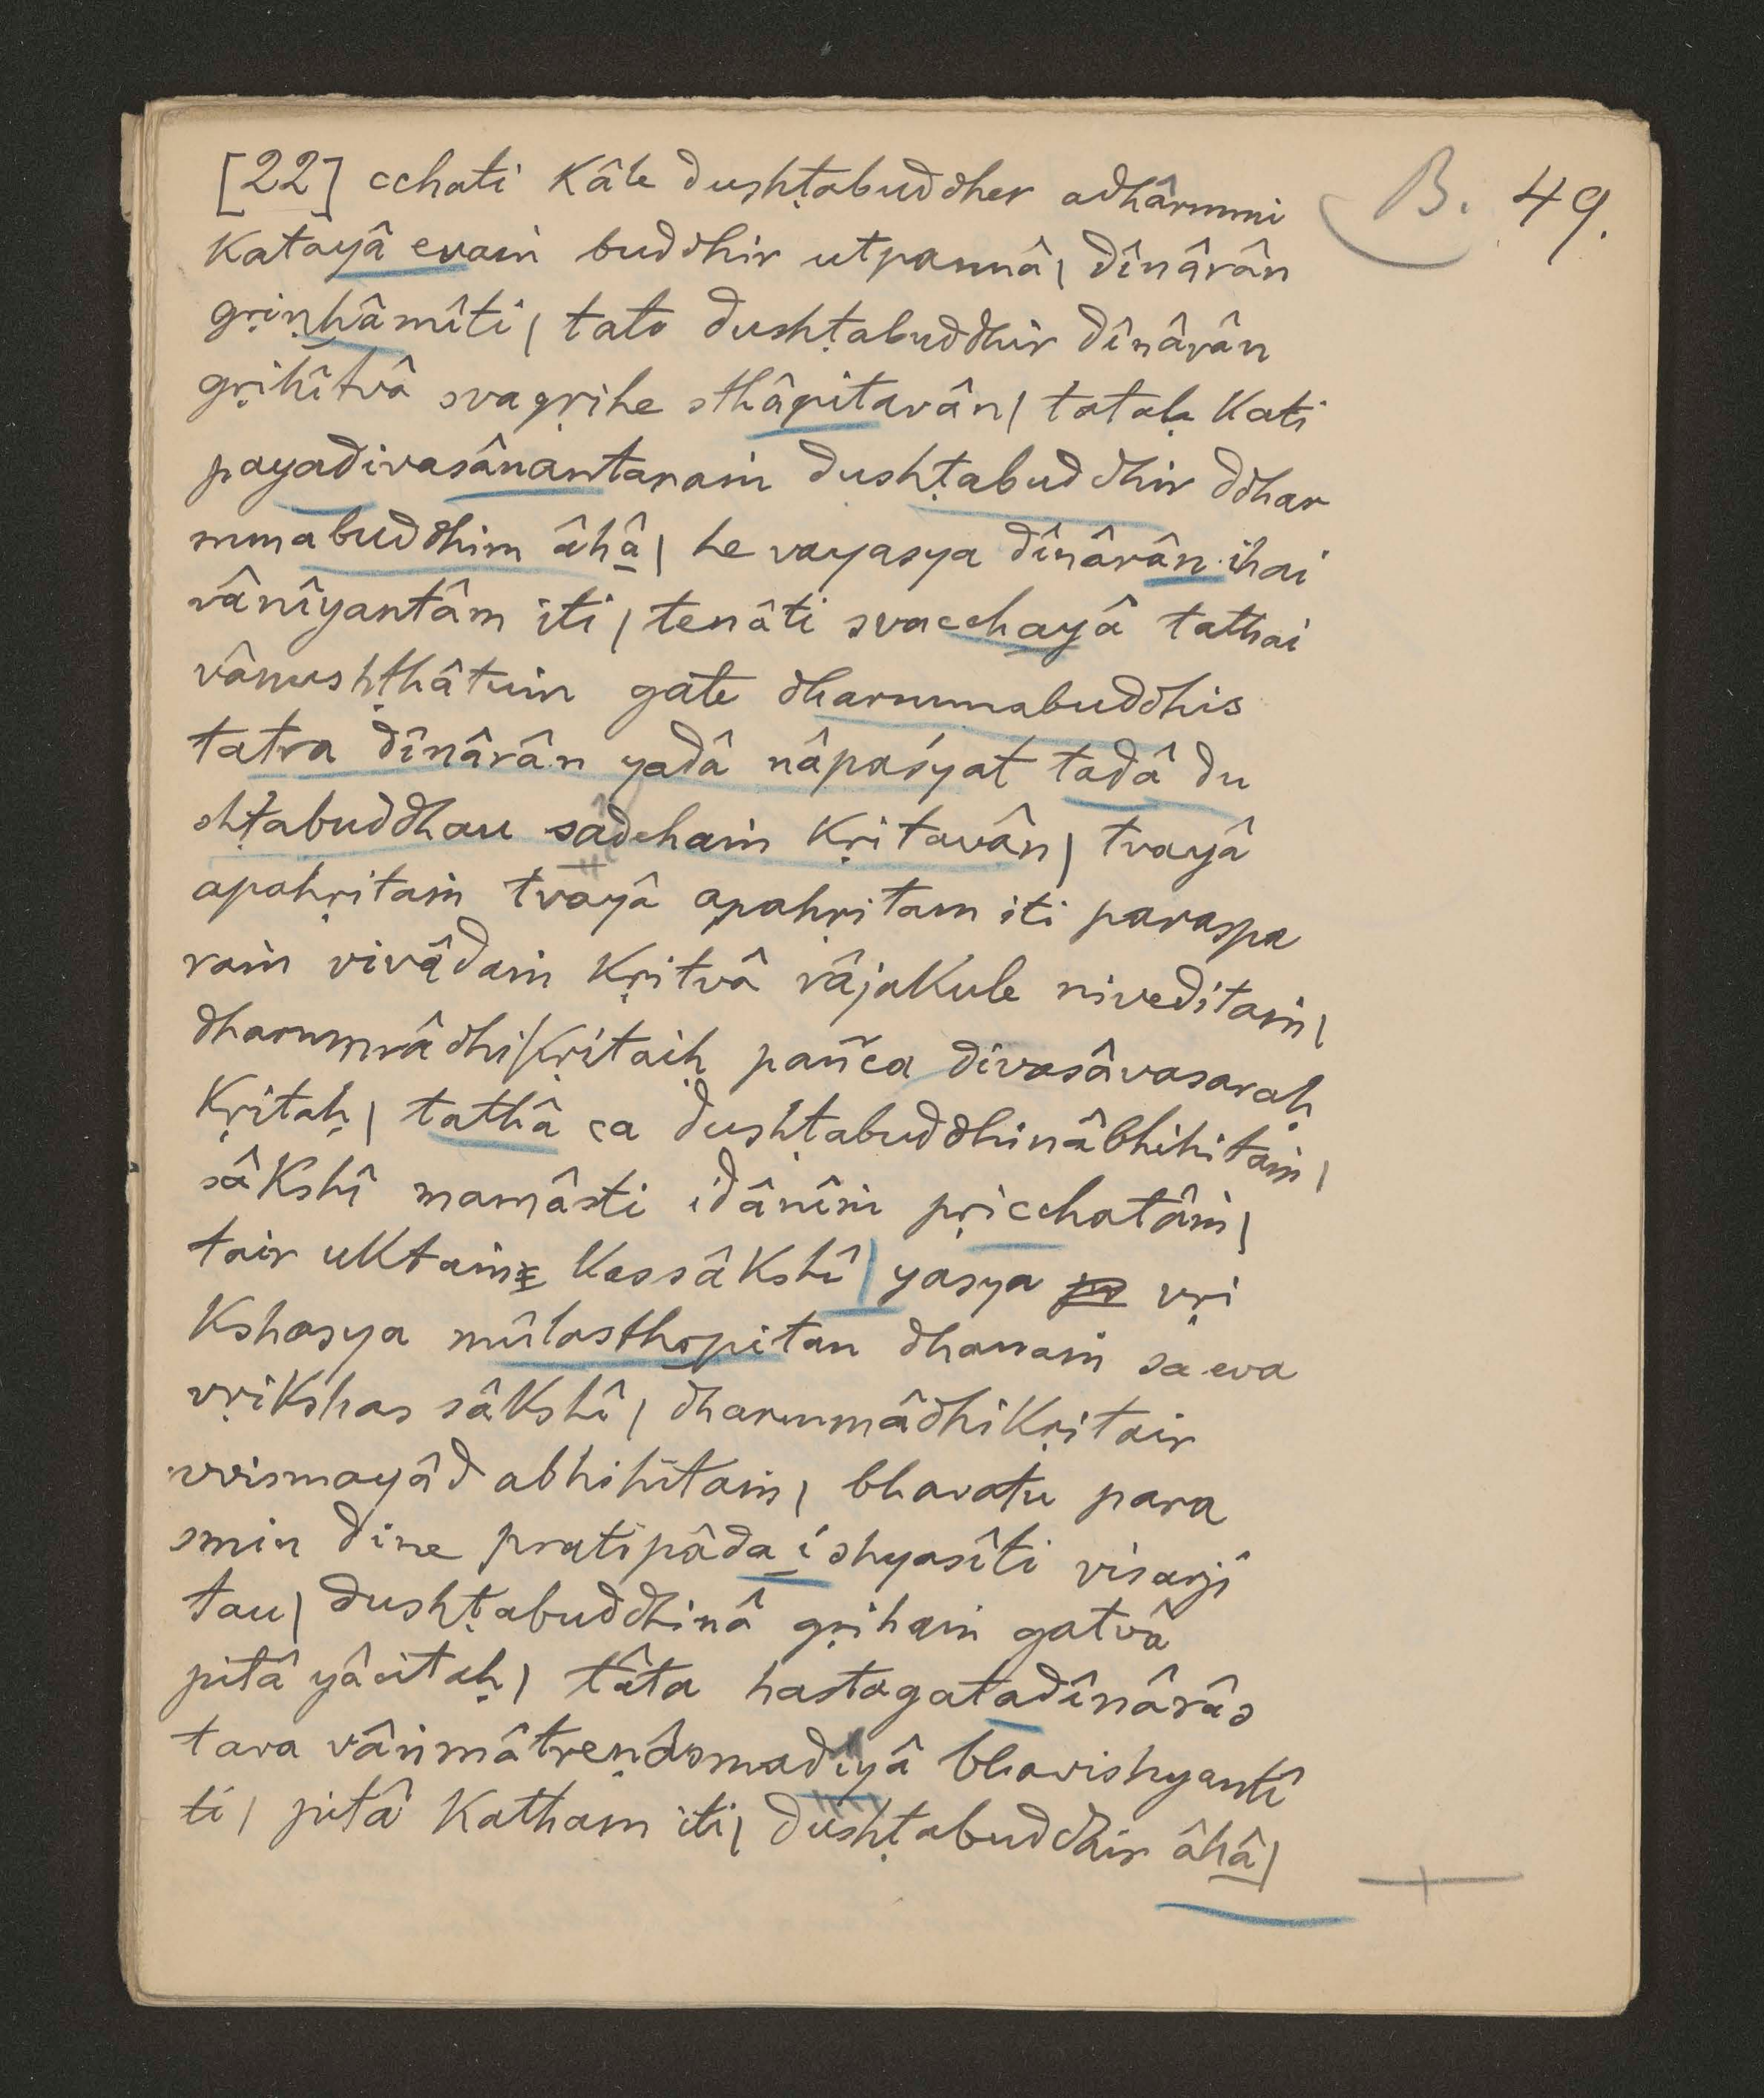 B. 49.
[22] cchati kâle dushṭabuddher adhârmmi
katayâ evaṁ buddhir utpannâ| dînârân
gṛiṇhâmîti| tato dushṭabuddhir dînârân
gṛihîtvâ svagṛihe sthâpitavân| tataḥ kati
payadivasânantaraṁ dushṭabuddhir ddhar
mmabuddhim âhâ| he vayasya dînârân ihai
vânîyantâm iti| tenâti svacchayâ tathai
vânushṭhâtuṁ gate dharmmabuddhis
tatra dînârân yadâ nâpaśyat tadâ du
shṭabuddhau sadehaṁ kṛitavân| tvayâ
apahṛitaṁ tvayâ apahṛitam iti paraspa
raṁ vivâdaṁ kṛitvâ râjakule niveditaṁ|
dharmmâdhikṛitaiḥ pañca divasâvasaraḥ
kṛitaḥ| tathâ ca dushṭabuddhinâbhihitaṁ|
sâkshî mamâsti idânîṁ pṛicchatâṁ|
tair uktaṁ kassâkshî| yasya vṛi
kshasya mûlasthapitan dhanaṁ sa eva
vṛikshas sâkshî| dharmmâdhikṛitair
vvismayâd abhihitaṁ| bhavatu para
smin dine pratipâdaishyasîti visarji
tau| dushṭabuddhinâ gṛihaṁ gatvâ
pitâ yâcitaḥ| tâta hastagatadînârâs
tava vâṅmâtreṇâsmadiyâ bhavishyantî
ti| pitâ katham iti| dushṭabuddhir âhâ|